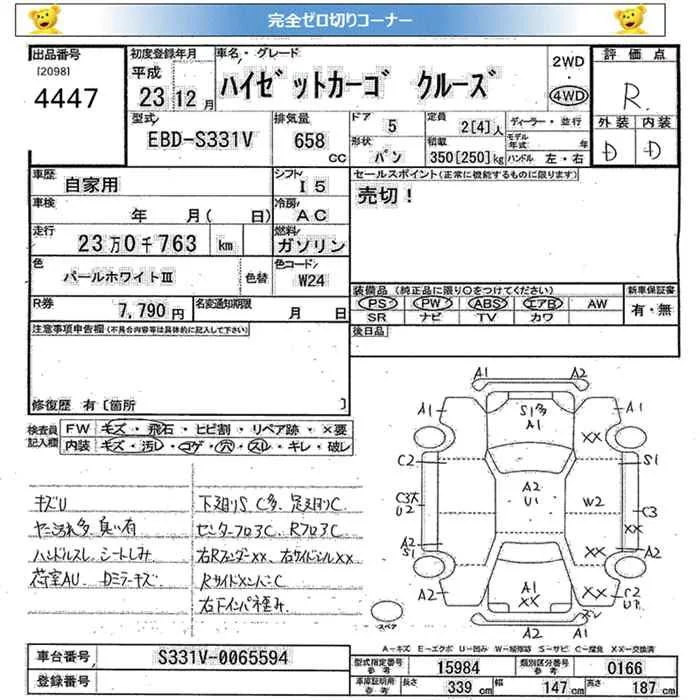 完全ゼロ切りコーナー
出品番号 初度登録年月 車名・グレード 評価点
[2098] 平成 ハイゼットカーゴ クルーズ 2WD
4447 23年12月 4WD R
型式 排気量 ドア 5 定員 2[4]人 ディーラー・並行 外装 内装
EBD-S331V 658 cc 形状 バン 積載 350[250]kg モデル年式 年 ハンドル 左・右 D D
車歴 自家用 シフト I5 セールスポイント(正常に機能するものに限ります)
車検 年 月( 日) 冷房 AC 売切!
走行 23万0千763 km 燃料 ガソリン
色 パールホワイトⅢ 色替 色コード W24
装備品(純正品に限り○をつけてください) 新車保証書
R券 7,790円 名変通知期限 月 日 PS PW ABS エアB AW 有・無
SR ナビ TV カワ
注意事項申告欄(不具合内容等は具体的に記入して下さい) 後日品
修復歴 有[箇所 ]
検査員記入欄 FW キズ・飛石・ヒビ割・リペア跡・×要
内装 キズ・汚レ・コゲ・穴・スレ・キレ・破レ
キズU 下廻りS C多、足廻りC
ヤニ汚れ多、臭い有 センターフロアC RフロアC
ハンドルスレ シートしみ 右RフェンダーXX、右サイドシルXX
荷室AU Dミラーキズ RサイドメンバーC
右下インパネ歪み
A1 A2
A1 S1多 A1 A1
XX
C2 S1
C3大 U2 A2 U1 W2 C3
XX
A2 S1 A2
A1 XX XX C2
A2
A1 A2
スペア
A-キズ E-エクボ U-凹み W-補修跡 S-サビ C-腐食 XX-交換済
車台番号 S331V-0065594 型式指定番号 参考 15984 類別区分番号 参考 0166
登録番号 車庫証明用 参考 長さ 339cm 幅 147cm 高さ 187cm